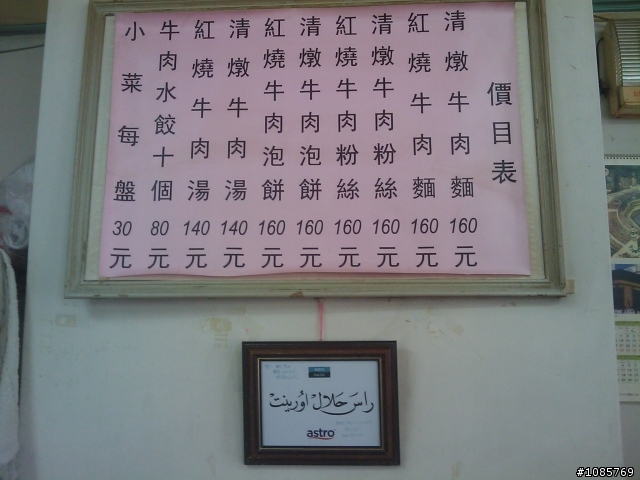 價目表
清燉牛肉麵 160元
紅燒牛肉麵 160元
清燉牛肉粉絲 160元
紅燒牛肉粉絲 160元
清燉牛肉泡餅 160元
紅燒牛肉泡餅 160元
清燉牛肉湯 140元
紅燒牛肉湯 140元
牛肉水餃十個 80元
小菜每盤 30元
راس حلال اورينت
astro
#1085769